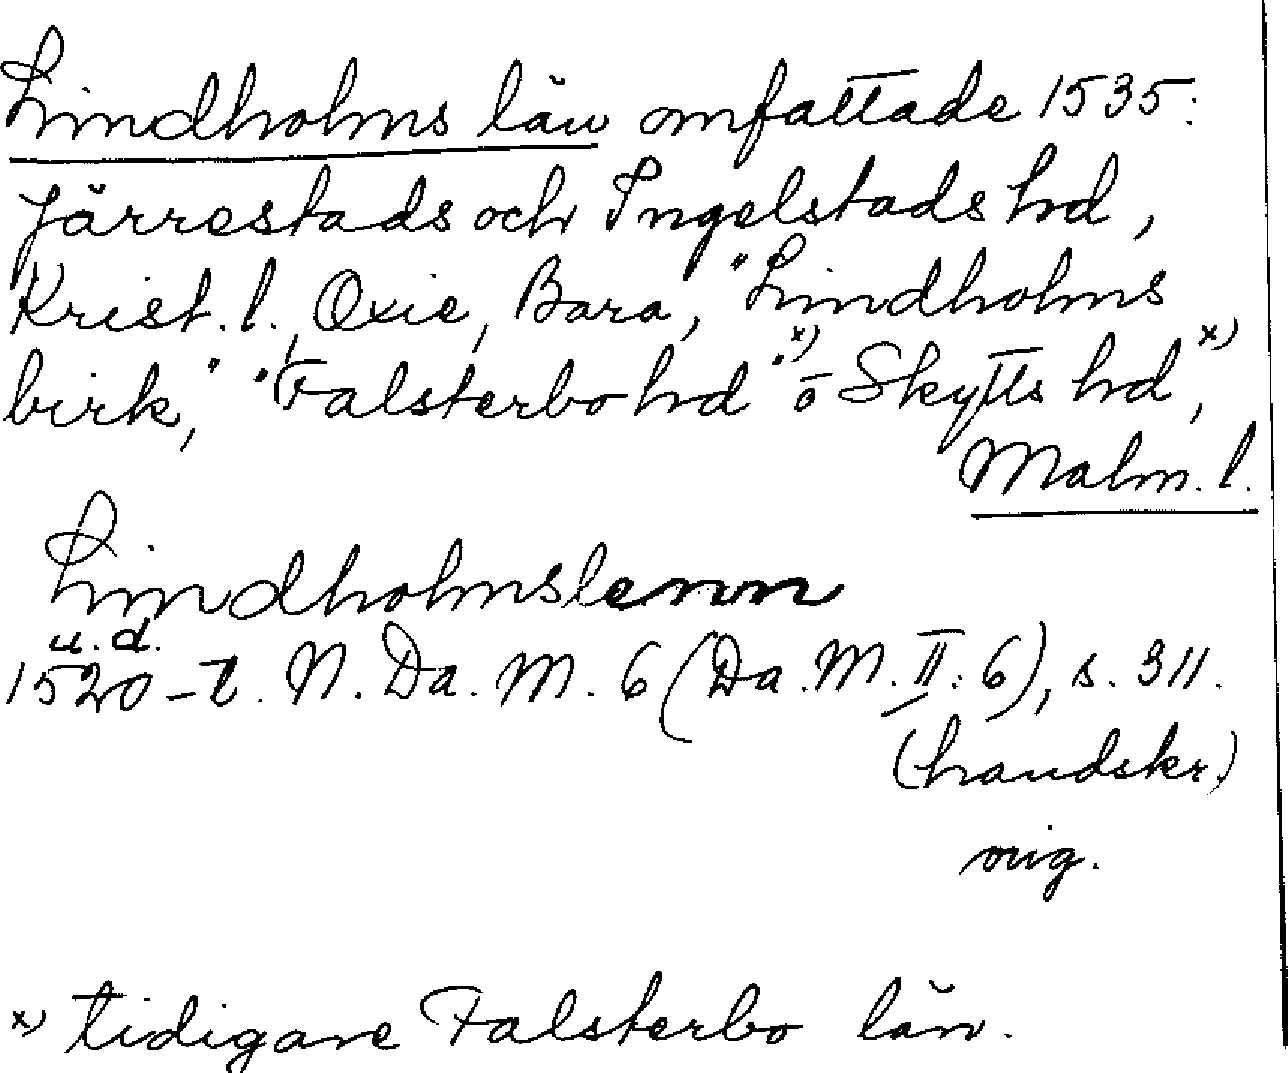 Lindholms län omfattade 1535:
Järrestads och Ingelstads hd,
Krist. l., Oxie, Bara, "Lindholms
birk," "Falsterbo hd" x) o Skytts hd, x)
Malm. l.
Lindholmslenn
u. d.
1520-t. N. Da. M. 6 (Da. M. II: 6), s. 311.
(handskr.)
orig.
x) tidigare Falsterbo län.